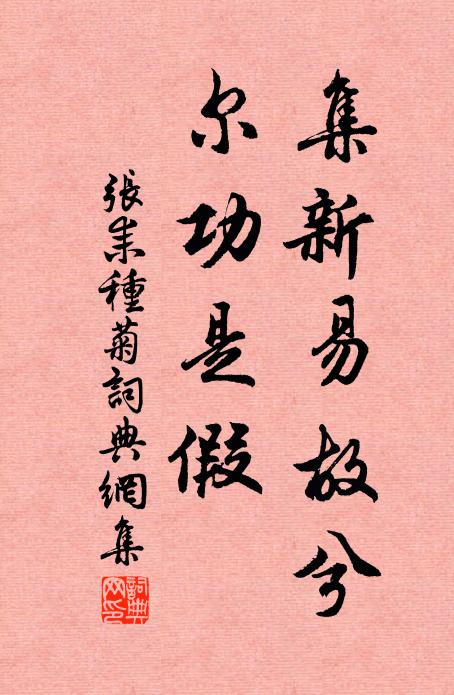 集新易故兮
尔功是假
張耒種菊詞典網集
詞典网印